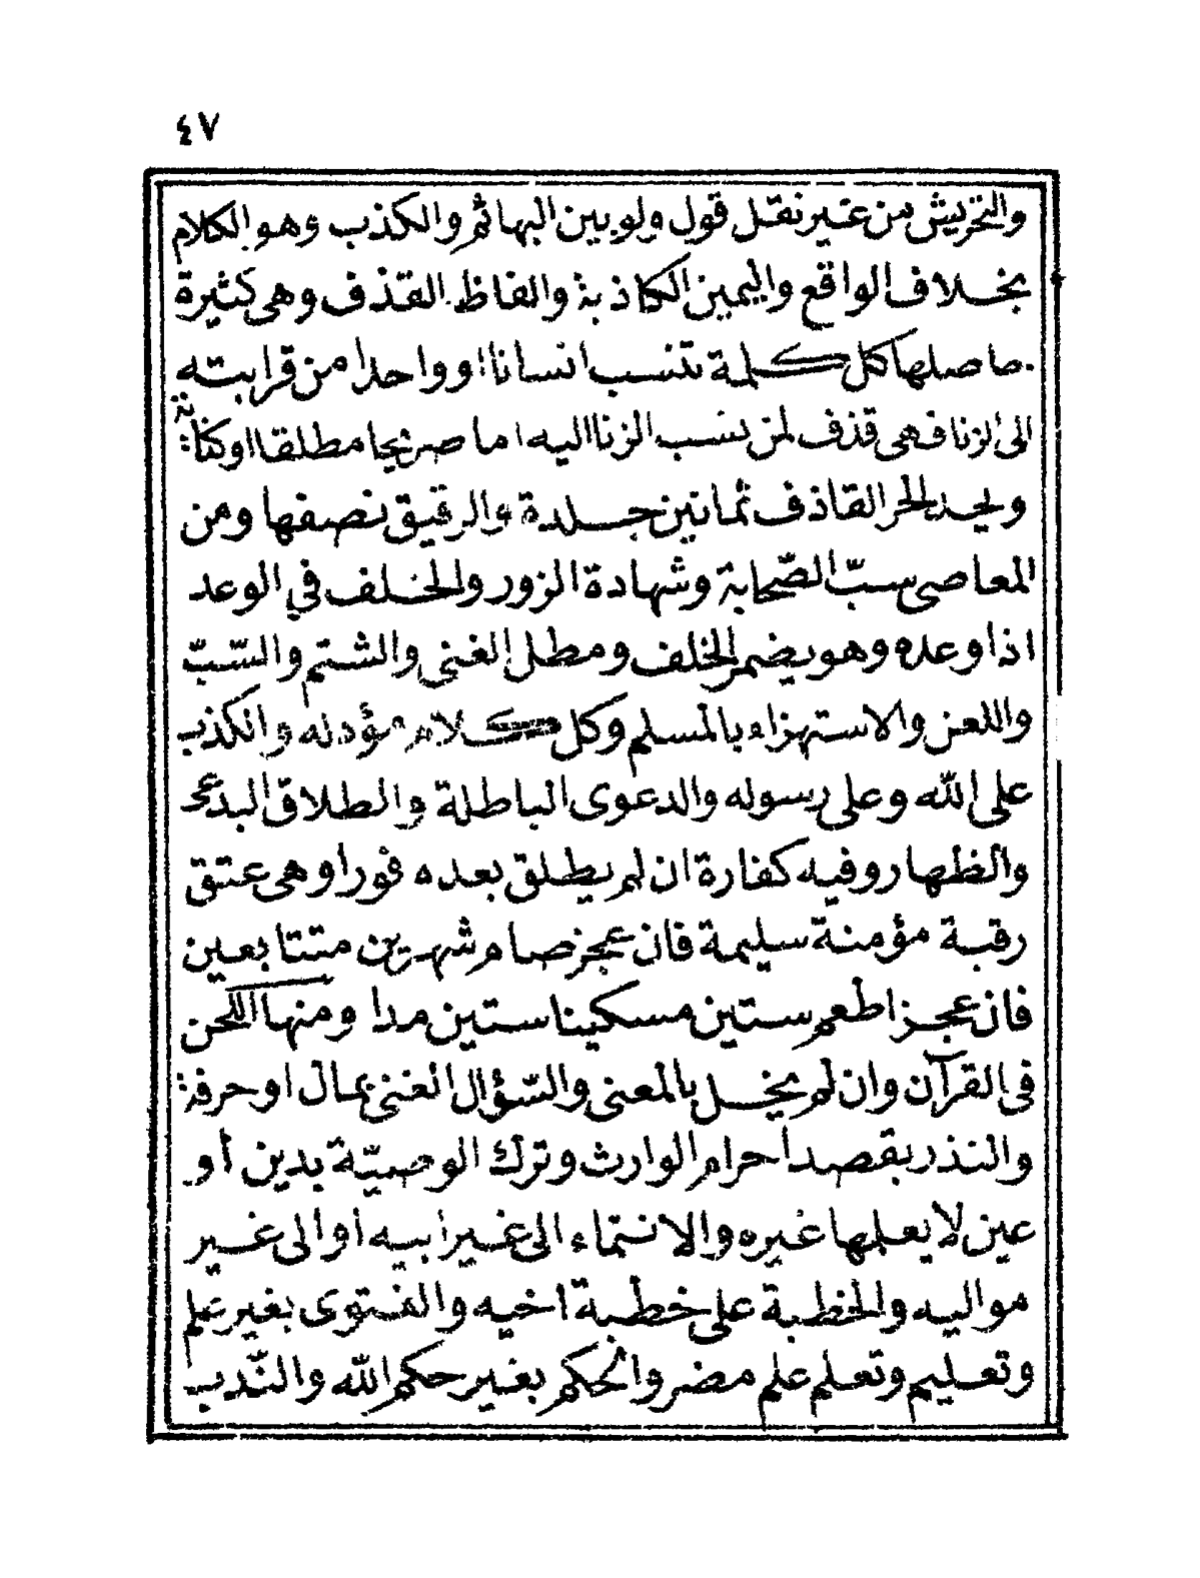 ٤٧
والتحريش من غير نقل قول ولو بين البهائم والكذب وهو الكلام
بخلاف الواقع واليمين الكاذبة والفاظ القذف وهي كثيرة
حاصلها كل كلمة تنسب انسانا او واحدا من قرابته
الى الزنا فهي قذف لمن نسب الزنا اليه اما صريحا مطلقا او كناية
ويحد الحر القاذف ثمانين جلدة والرقيق نصفها ومن
المعاصي سبّ الصّحابة وشهادة الزور والخلف في الوعد
اذا وعده وهو يضمر الخلف ومطل الغني والشتم والسّبّ
واللعن والاستهزاء بالمسلم وكل كلام مؤذ له والكذب
على الله وعلى رسوله والدعوى الباطلة والطلاق البدعي
والظهار وفيه كفارة ان لم يطلق بعده فورا وهي عتق
رقبة مؤمنة سليمة فان عجز صام شهرين متتابعين
فان عجز اطعم ستين مسكينا ستين مدا ومنها اللحن
في القرآن وان لم يخل بالمعنى والسّؤال الغني بمال او حرفة
والنذر بقصد احرام الوارث وترك الوصيّة بدين أو
عين لا يعلمها غيره والانتماء الى غير ابيه أو الى غير
مواليه والخطبة على خطبة اخيه والفتوى بغير علم
وتعليم وتعلم علم مضر والحكم بغير حكم الله والنّدب